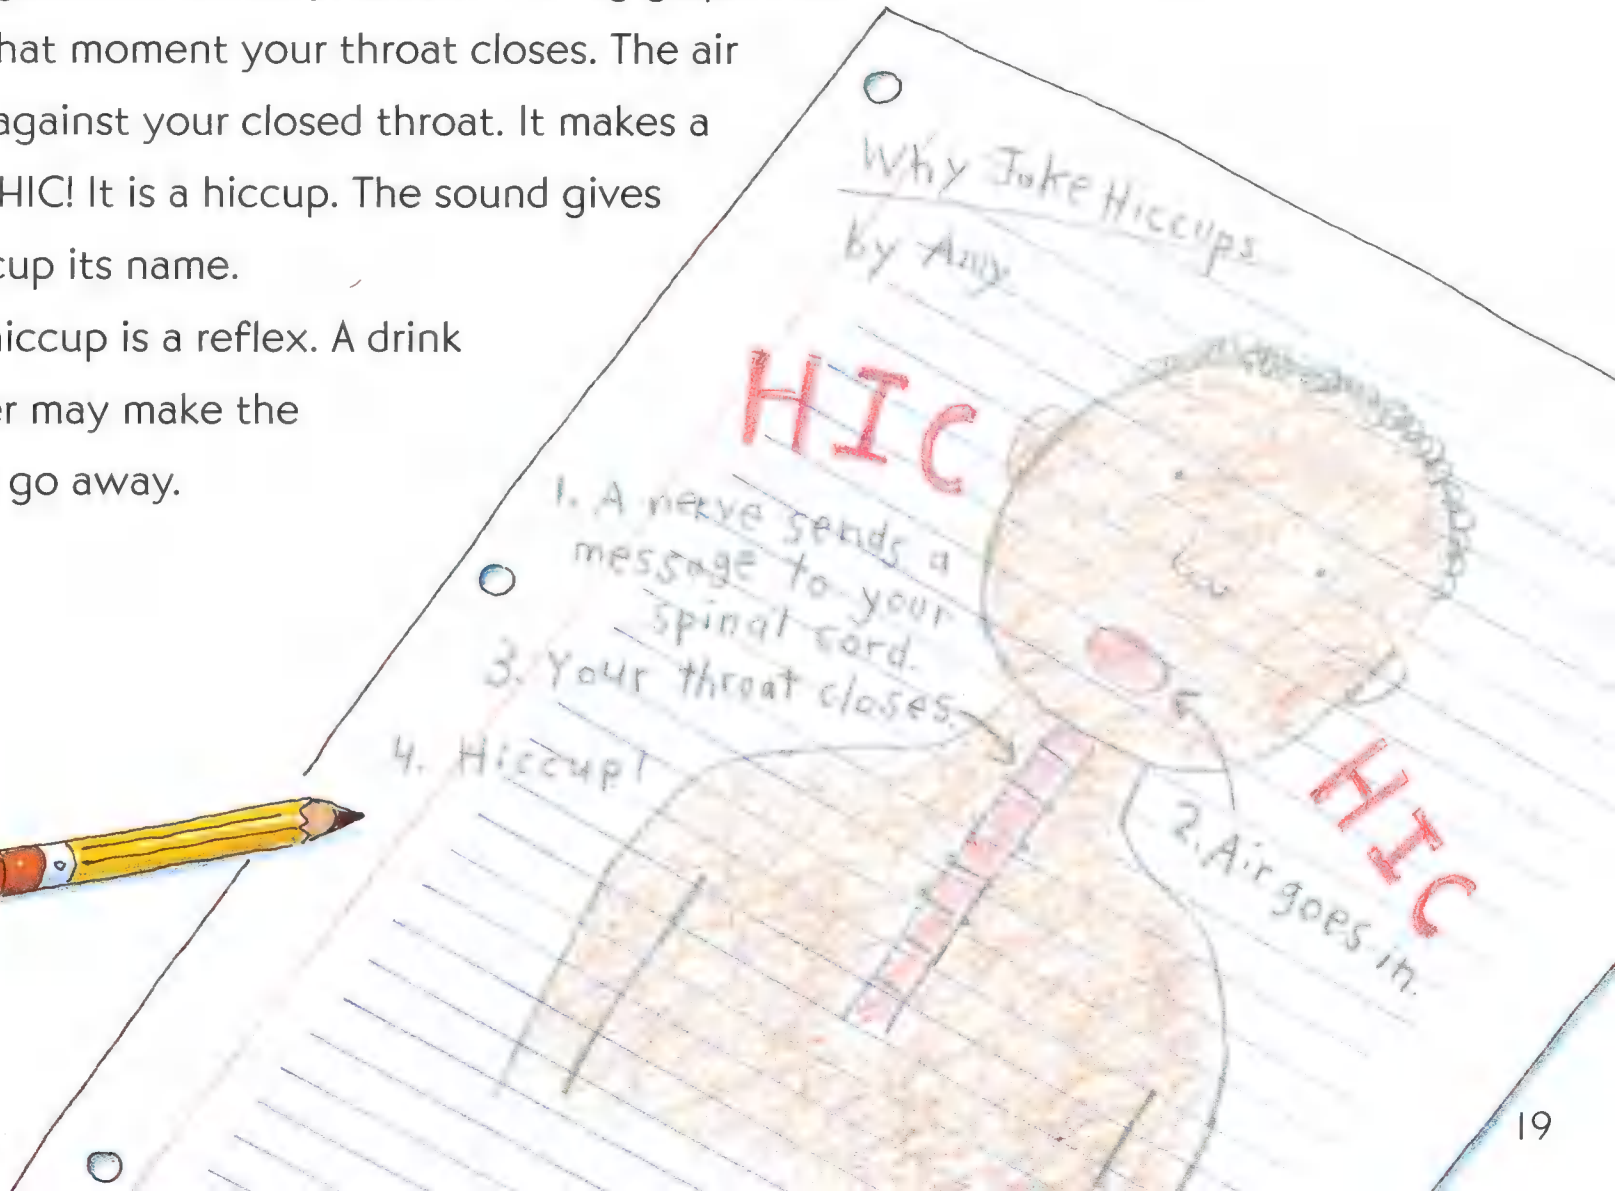 hat moment your throat closes. The air
against your closed throat. It makes a
HIC! It is a hiccup. The sound gives
cup its name.
iccup is a reflex. A drink
er may make the
go away.
Why Jake Hiccups
by Amy
HIC
1. A nerve sends a
message to your
spinal cord.
3. Your throat closes.
4. Hiccup!
HIC
2. Air goes in.
19